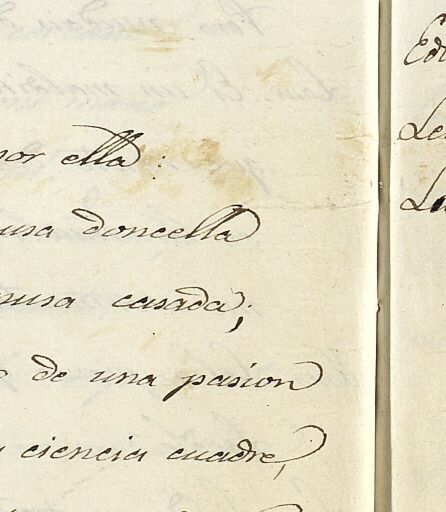 por ella:
musa doncella
musa casada;
de una pasion
ciencia cuadre,